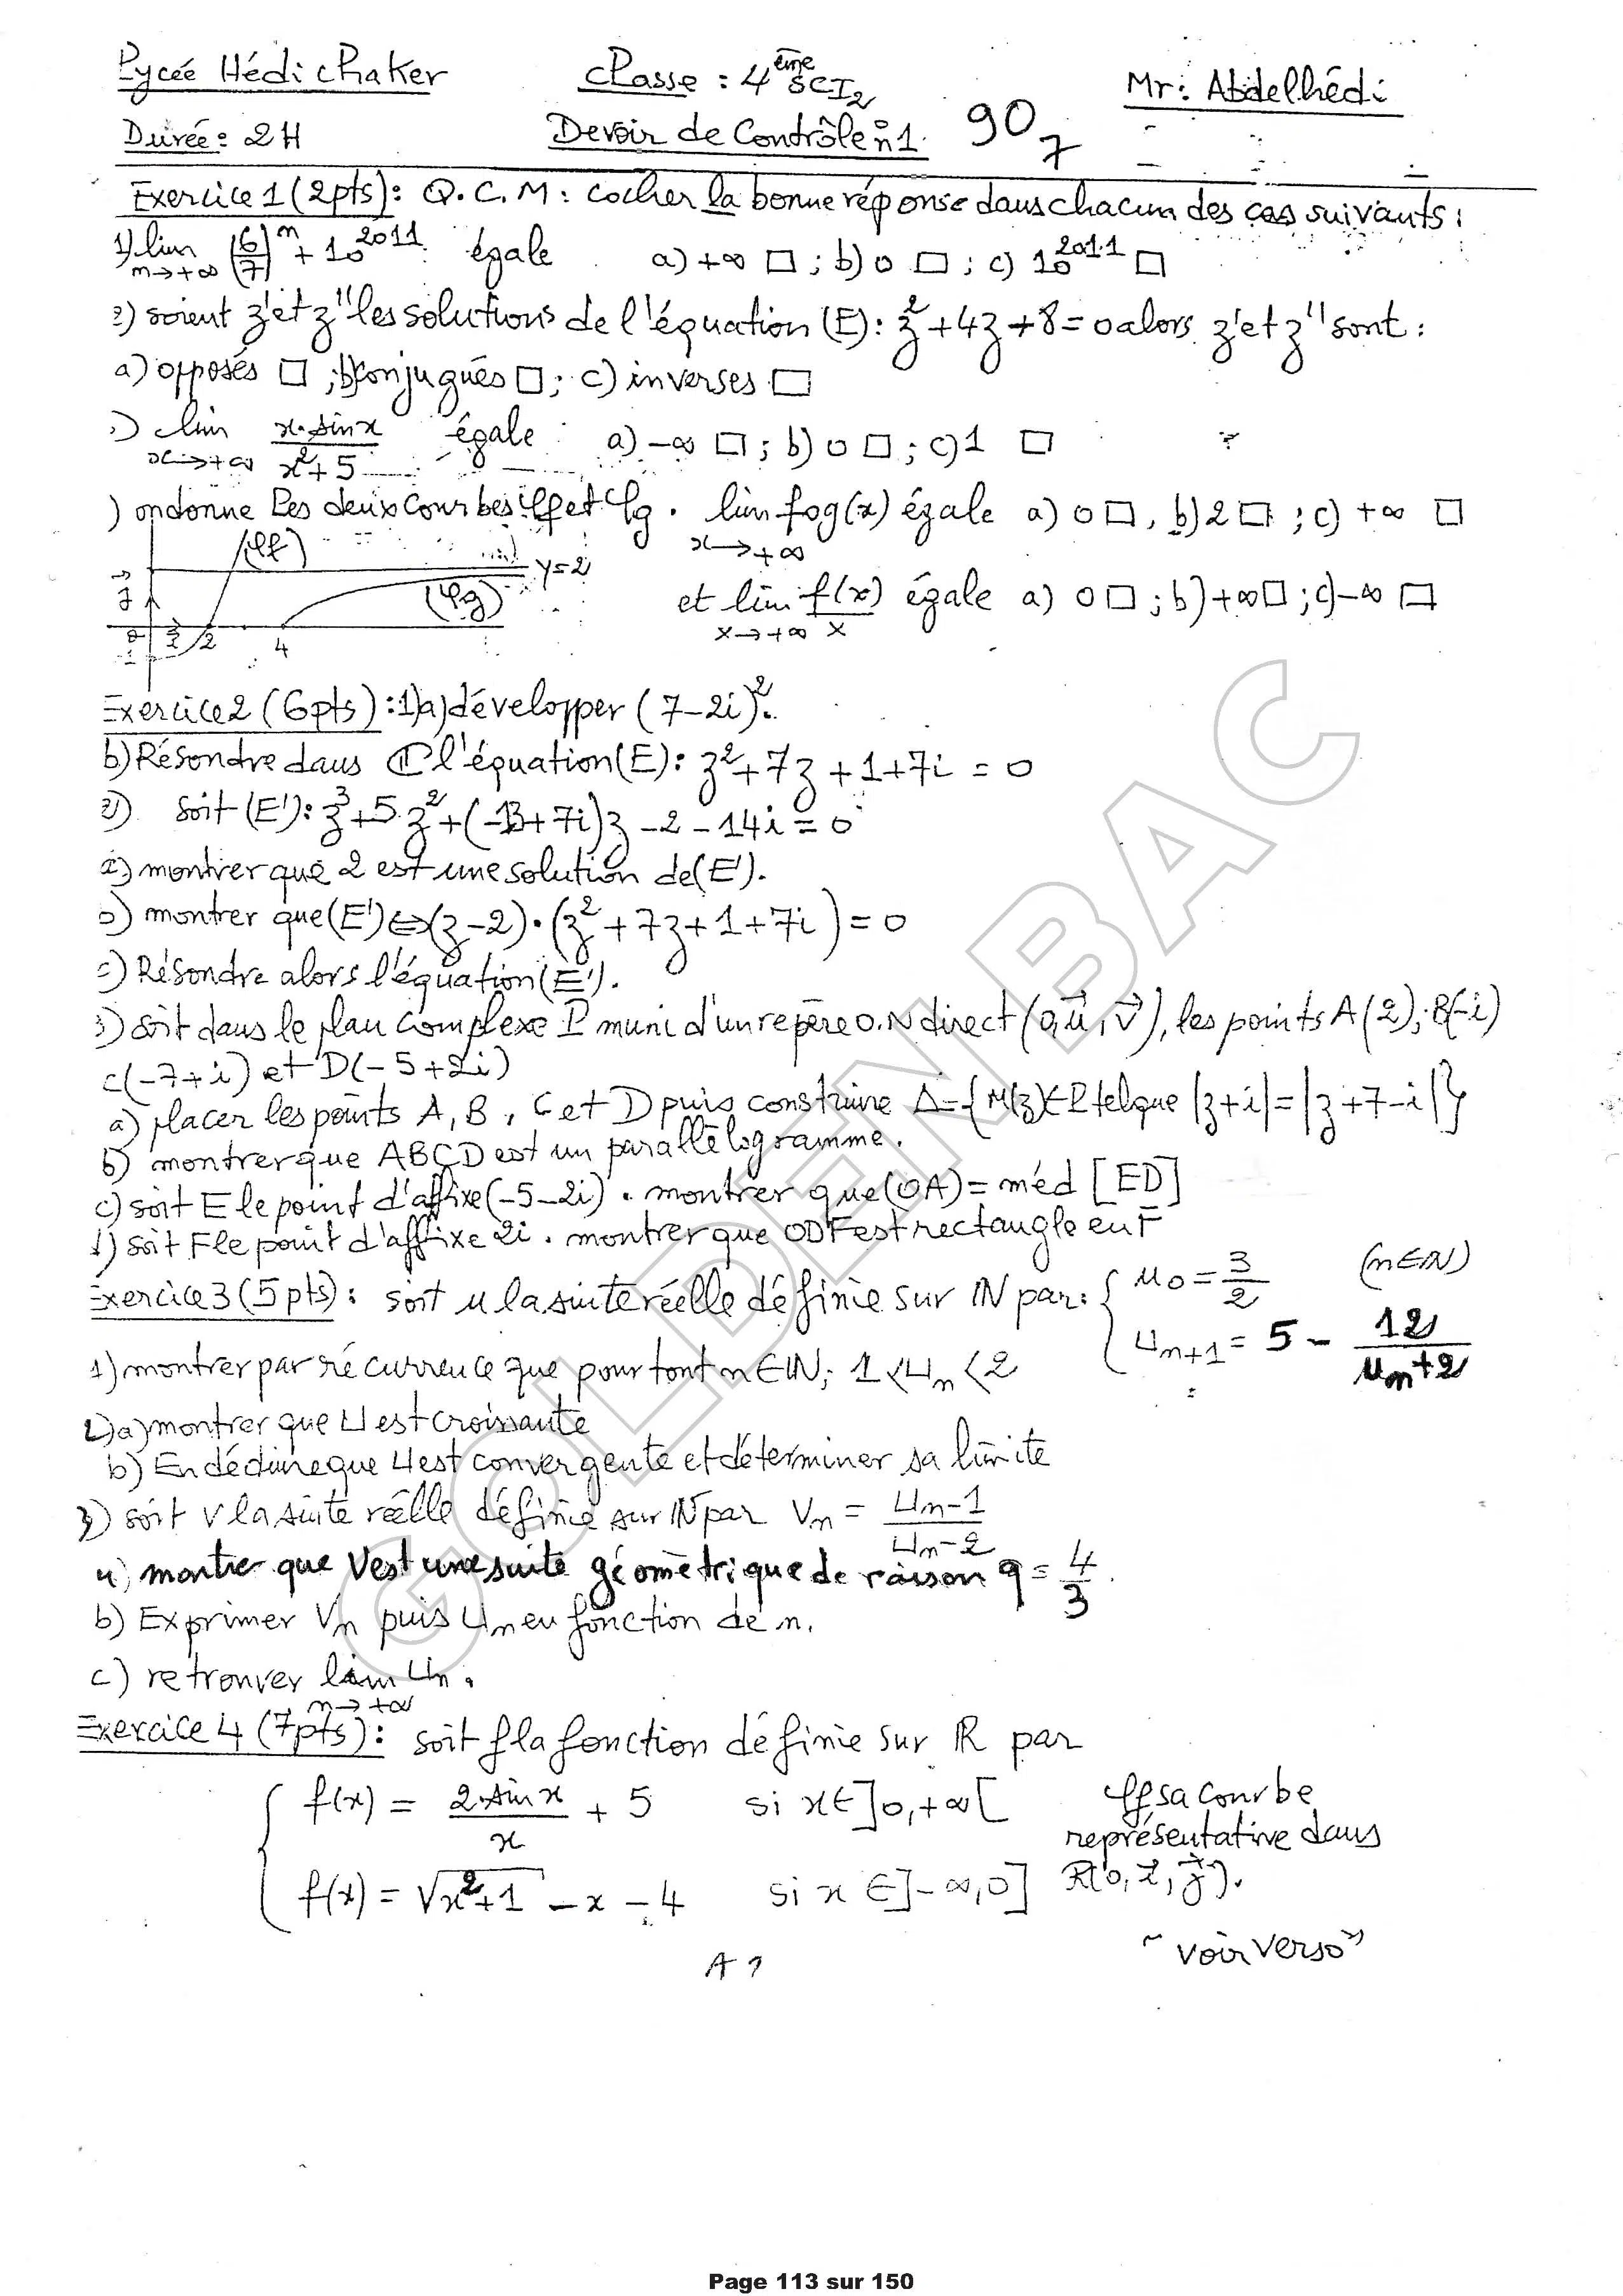 Lycée Hédi chaker
Classe : 4ème SCI2
Mr : Abdelhédi
Durée : 2H
Devoir de Contrôle n°1.
90
7
Exercice 1 (2pts) : Q.C.M : cocher la bonne réponse dans chacun des cas suivants :
1) lim n→+∞ (6/7)^n + 10^2011 égale a) +∞ □ ; b) 0 □ ; c) 10^2011 □
2) soient z' et z'' les solutions de l'équation (E) : z² + 4z + 8 = 0 alors z' et z'' sont :
a) opposés □ ; b) conjugués □ ; c) inverses □
) lim x→+∞ x.sinx / x²+5 égale : a) -∞ □ ; b) 0 □ ; c) 1 □
) on donne les deux courbes ℓf et ℓg . lim x→+∞ fog(x) égale a) 0 □ , b) 2 □ ; c) +∞ □
(ℓf)
y=2
j
(ℓg)
0 i 2 4
et lim x→+∞ f(x)/x égale a) 0 □ ; b) +∞ □ ; c) -∞ □
Exercice 2 (6pts) : 1) a) développer (7-2i)².
b) Résoudre dans ℂ l'équation (E) : z² + 7z + 1 + 7i = 0
2) soit (E') : z³ + 5z² + (-13 + 7i)z - 2 - 14i = 0
a) montrer que 2 est une solution de (E').
b) montrer que (E') ⇔ (z-2).(z² + 7z + 1 + 7i) = 0
c) Résoudre alors l'équation (E').
3) soit dans le plan complexe P muni d'un repère O.N direct (o, u, v), les points A(2) ; B(-i)
C(-7+i) et D(-5+2i)
a) placer les points A, B, C et D puis construire Δ = {M(z) ∈ P tel que |z+i| = |z+7-i|}
b) montrer que ABCD est un parallèlogramme.
c) soit E le point d'affixe (-5-2i) . montrer que (OA) = méd [ED]
d) soit F le point d'affixe 2i . montrer que ODF est rectangle en F
Exercice 3 (5pts) : soit u la suite réelle définie sur IN par : { u0 = 3/2 (n∈IN)
un+1 = 5 - 12/(un+2)
1) montrer par récurrence que pour tout n∈IN ; 1 < Un < 2
2) a) montrer que U est croissante
b) En déduire que U est convergente et déterminer sa limite
3) soit V la suite réelle définie sur IN par Vn = (Un-1)/(Un-2)
a) montrer que V est une suite géométrique de raison q = 4/3.
b) Exprimer Vn puis Un en fonction de n.
c) retrouver lim n→+∞ Un.
Exercice 4 (7pts) : soit f la fonction définie sur IR par
{ f(x) = 2.sinx/x + 5 si x∈]0,+∞[
f(x) = √(x²+1) - x - 4 si x∈]-∞,0]
ℓf sa courbe
représentative dans
R(o, i, j).
"voir verso"
A 1
GOLDEN BAC
Page 113 sur 150